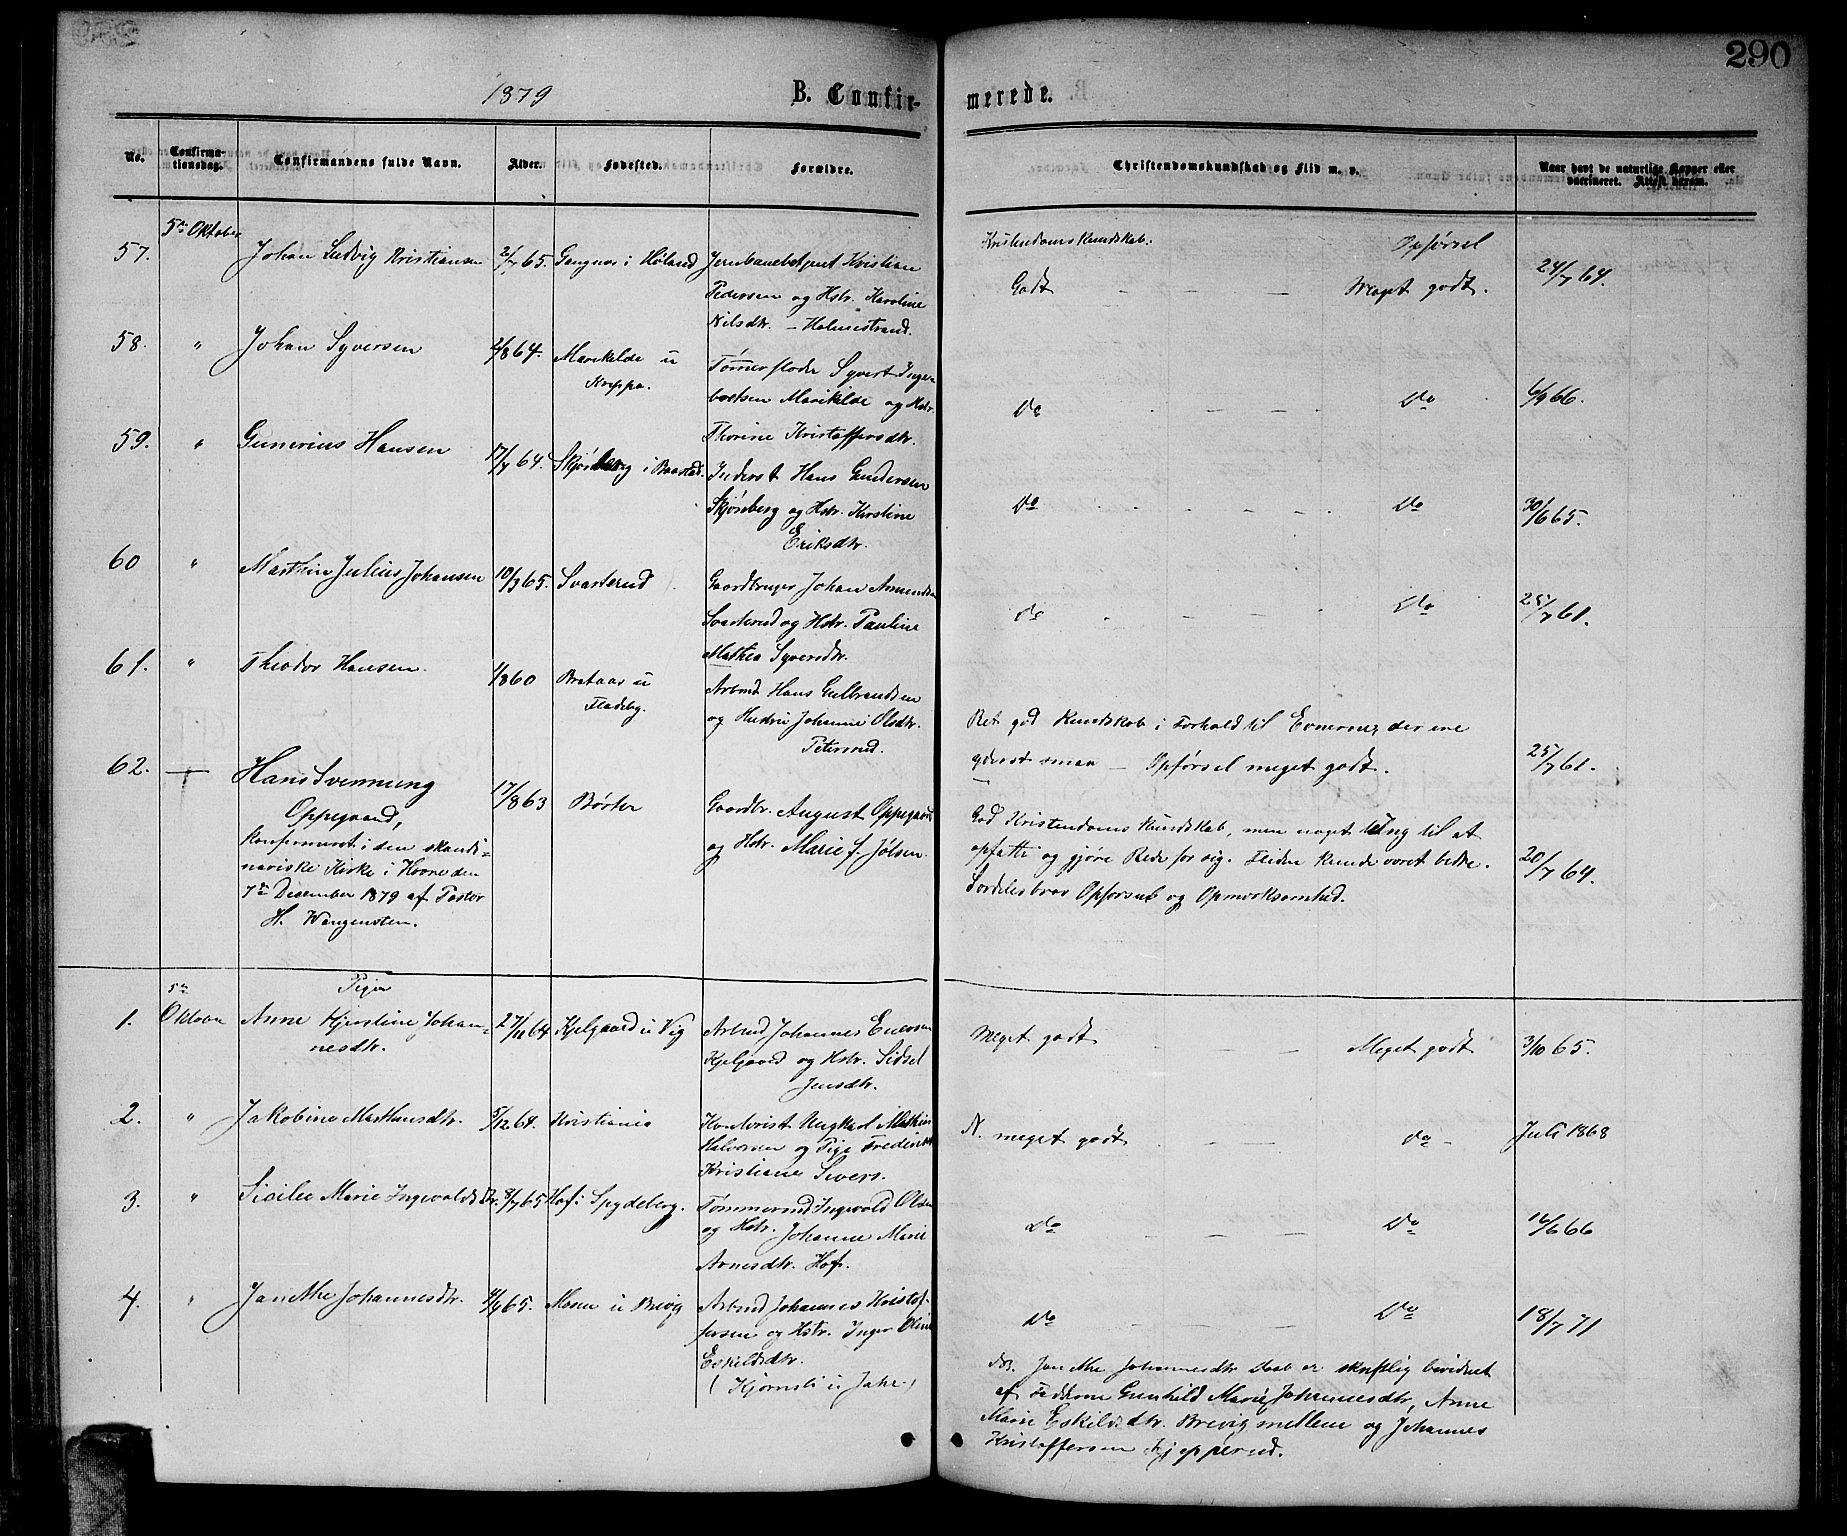 290
1879
B. Confir-
merede.
No.
Confirma-
tionsdag.
Confirmandens fulde Navn.
Alder.
Fødested.
Forældre.
Christendomskundskab og Flid m. v.
Naar havt de naturlige Kopper eller
vaccineret. Attest derom.
5te Oktober
57.
Johan Ludvig Kristiansen
2/7 65.
i Høland
Kristian
Pedersen og Hstr. Karoline
Nilsdtr. - Holmestrand.
Kristendomskundskab.
Opførsel
Godt
Meget godt.
24/7 64.
58.
"
Johan Syversen
2/8 64.
Marikilde u
Kreppa.
Tømmerfløder Syvert Inge-
bretsen Marikilde og Hstr.
Thorine Kristoffersdtr.
Do
Do
6/9 66.
59.
"
Gunerius Hansen
17/7 64.
Skjønberg i Baastad.
Inderst Hans Gundersen
Skjønberg og Hstr. Kirstine
Eriksdtr.
Do
Do
30/6 65.
60
"
Marthin Julius Johansen
10/9 65.
Svarterud
Gaardbruger Johan Amundsen
Svarterud og Hstr. Pauline
Mathea Syversdtr.
do
Do
25/7 61.
61.
"
Theodor Hansen
1/8 60
Brataas u
Fladeby.
Arbmd Hans Gulbrandsen
og Hustru Johanne Olsdtr.
Petersrud.
Ret god Kundskab i Forhold til Evnerne, der ere
yderst smaa - Opførsel meget godt.
25/7 61.
62.
Hans Svennung
Oppegaard,
konfermeret i den skandi-
naviske Kirke i Havre den
7de December 1879 af Pastor
H. Wangensten.
17/8 63
Børter
Gaardbr. August Oppegaard
og Hstr. Marie J. Jølsen.
God Kristendomskundskab, men noget tung til at
opfatte og gjøre Rede for sig. Fliden kunde været bedre.
Særdeles brav Opførsel og Opmærksomhed.
20/7 64.
Piger
5te
Oktober
1.
Anne Kjerstine Johan-
nesdtr.
27/11 64
Kjelgaard u Vig
Arbmd Johannes Enersen
Kjelgaard og Hstr. Sidsel
Jensdtr.
Meget godt
Meget godt
3/10 65.
2.
"
Jakobine Marthinsdtr.
5/12 64.
Kristiania
Ungkarl Marthin
Halvorsen og Pige Frederikke
Kristiane Sivers.
N. meget godt
do
Juli 1868
3.
"
Sicilie Marie Ingvaldsdtr.
8/7 65
Hof i Spydeberg.
Tømmermd Ingvald Olsen
og Hstr. Johanne Marie
Arnesdtr. Hof.
Do
Do
16/6 66
4.
"
Janethe Johannesdtr.
4/9 65.
Moen u Brevig
Arbmd Johannes Kristof-
fersen og Hstr. Inger Oline
Eskildsdtr.
(Hjørnsli u Jahr.)
Do
Do
18/7 71
NB. Janethe Johannesdtr Daab er skriftlig bevidnet
af Fadderne Gunhild Marie Johannesdtr, Anne
Marie Eskildsdtr. Brevig mellem og Johannes
Kristoffersen Kjepperud.